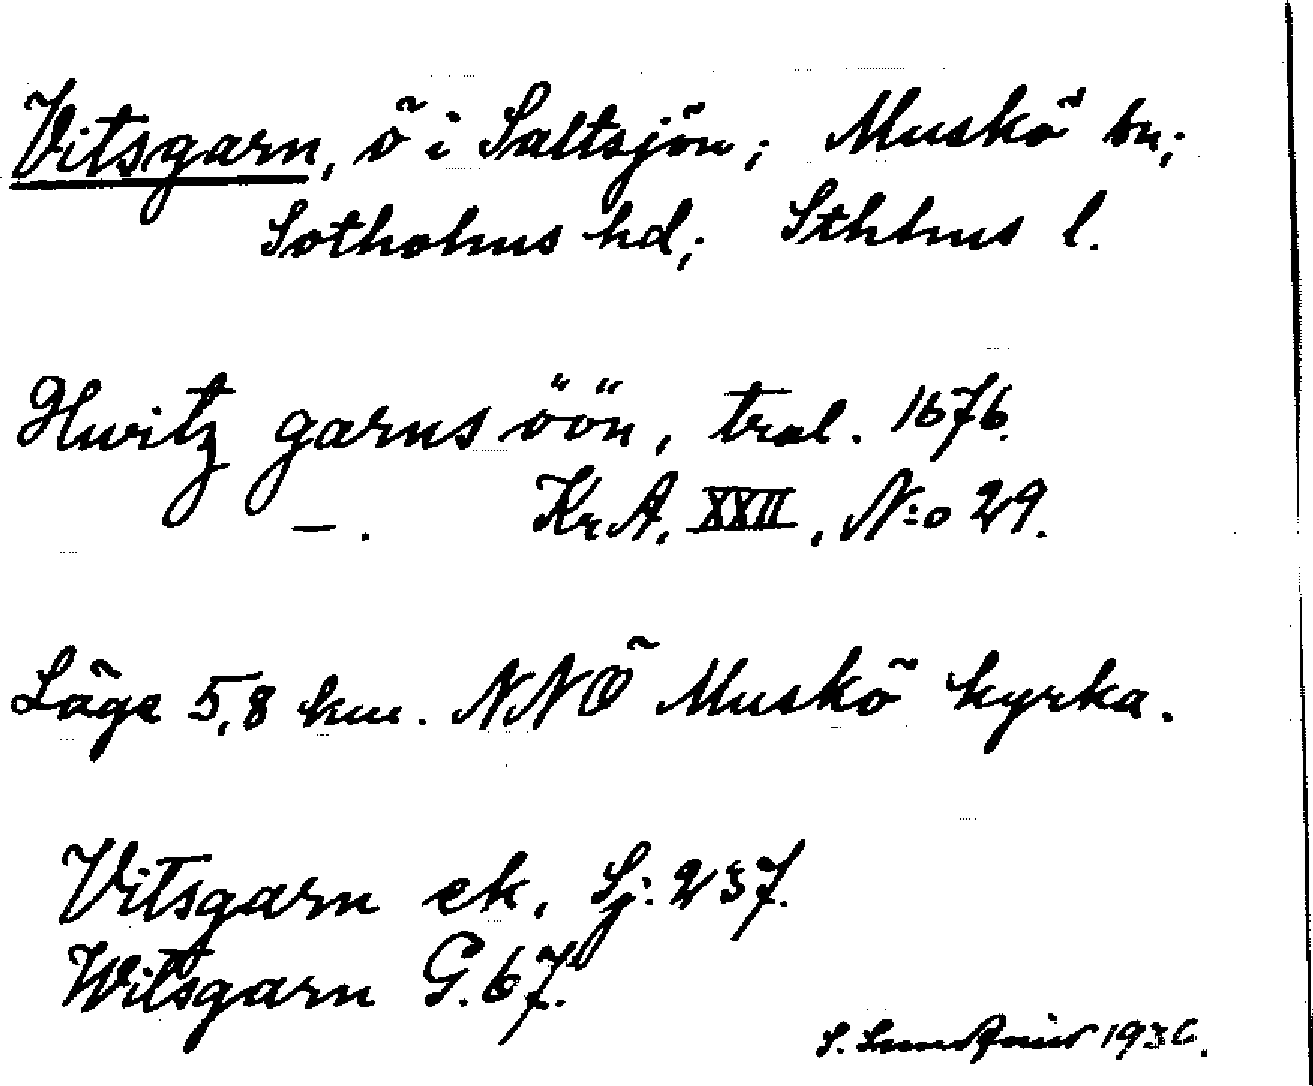 Vitsgarn, ö i Saltsjön; Muskö sn;
Sotholms hd; Sthlms l.
Hwitz garns öön, tral. 1676.
—. Kr.A. XXII, N:o 29.
Läge 5,8 km. NNÖ Muskö kyrka.
Vitsgarn ek. Sj: 237.
Witsgarn G. 67.
S. 1936.